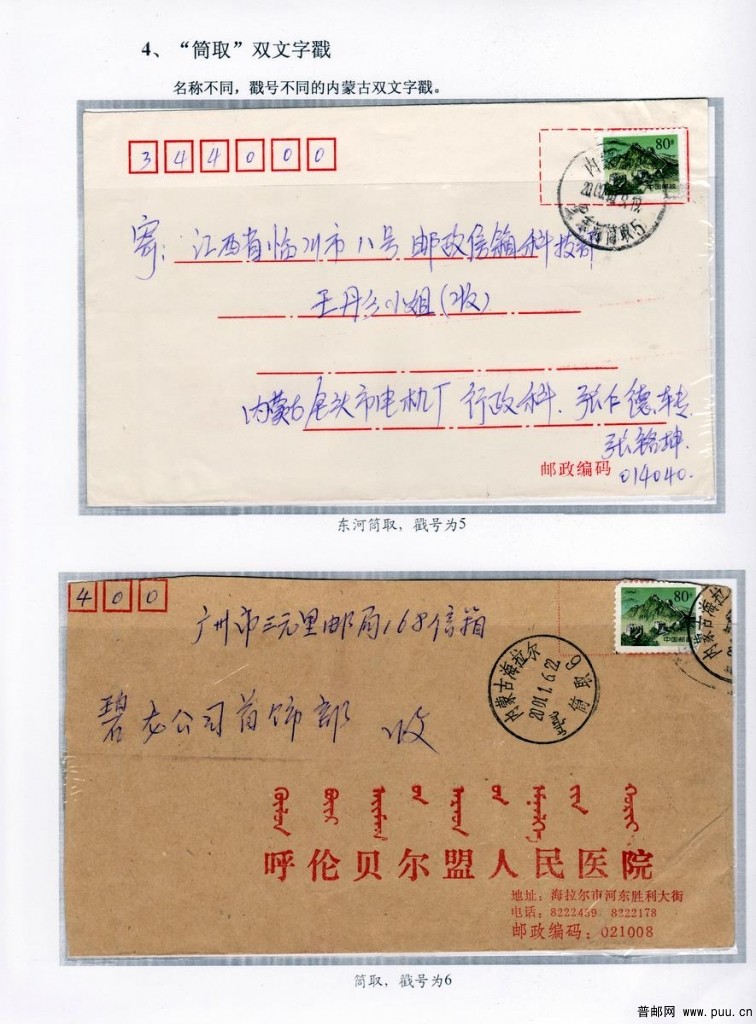 4、“筒取”双文字戳
名称不同，戳号不同的内蒙古双文字戳。
344000
80分
中国邮政
寄：江西省临川市八号邮政信箱科技部
王丹兰小姐（收）
内蒙古包头市电机厂行政科．张仁德转
张铭坤
邮政编码 014040.
东河筒取，戳号为5
400
80分
中国邮政
广州市三元里邮局168信箱
内蒙古海拉尔
2001.1.6.22
筒取 6
碧龙公司首饰部 收
呼伦贝尔盟人民医院
地址：海拉尔市河东胜利大街
电话：8222439 8222178
邮政编码：021008
筒取，戳号为6
普邮网 www.puu.cn